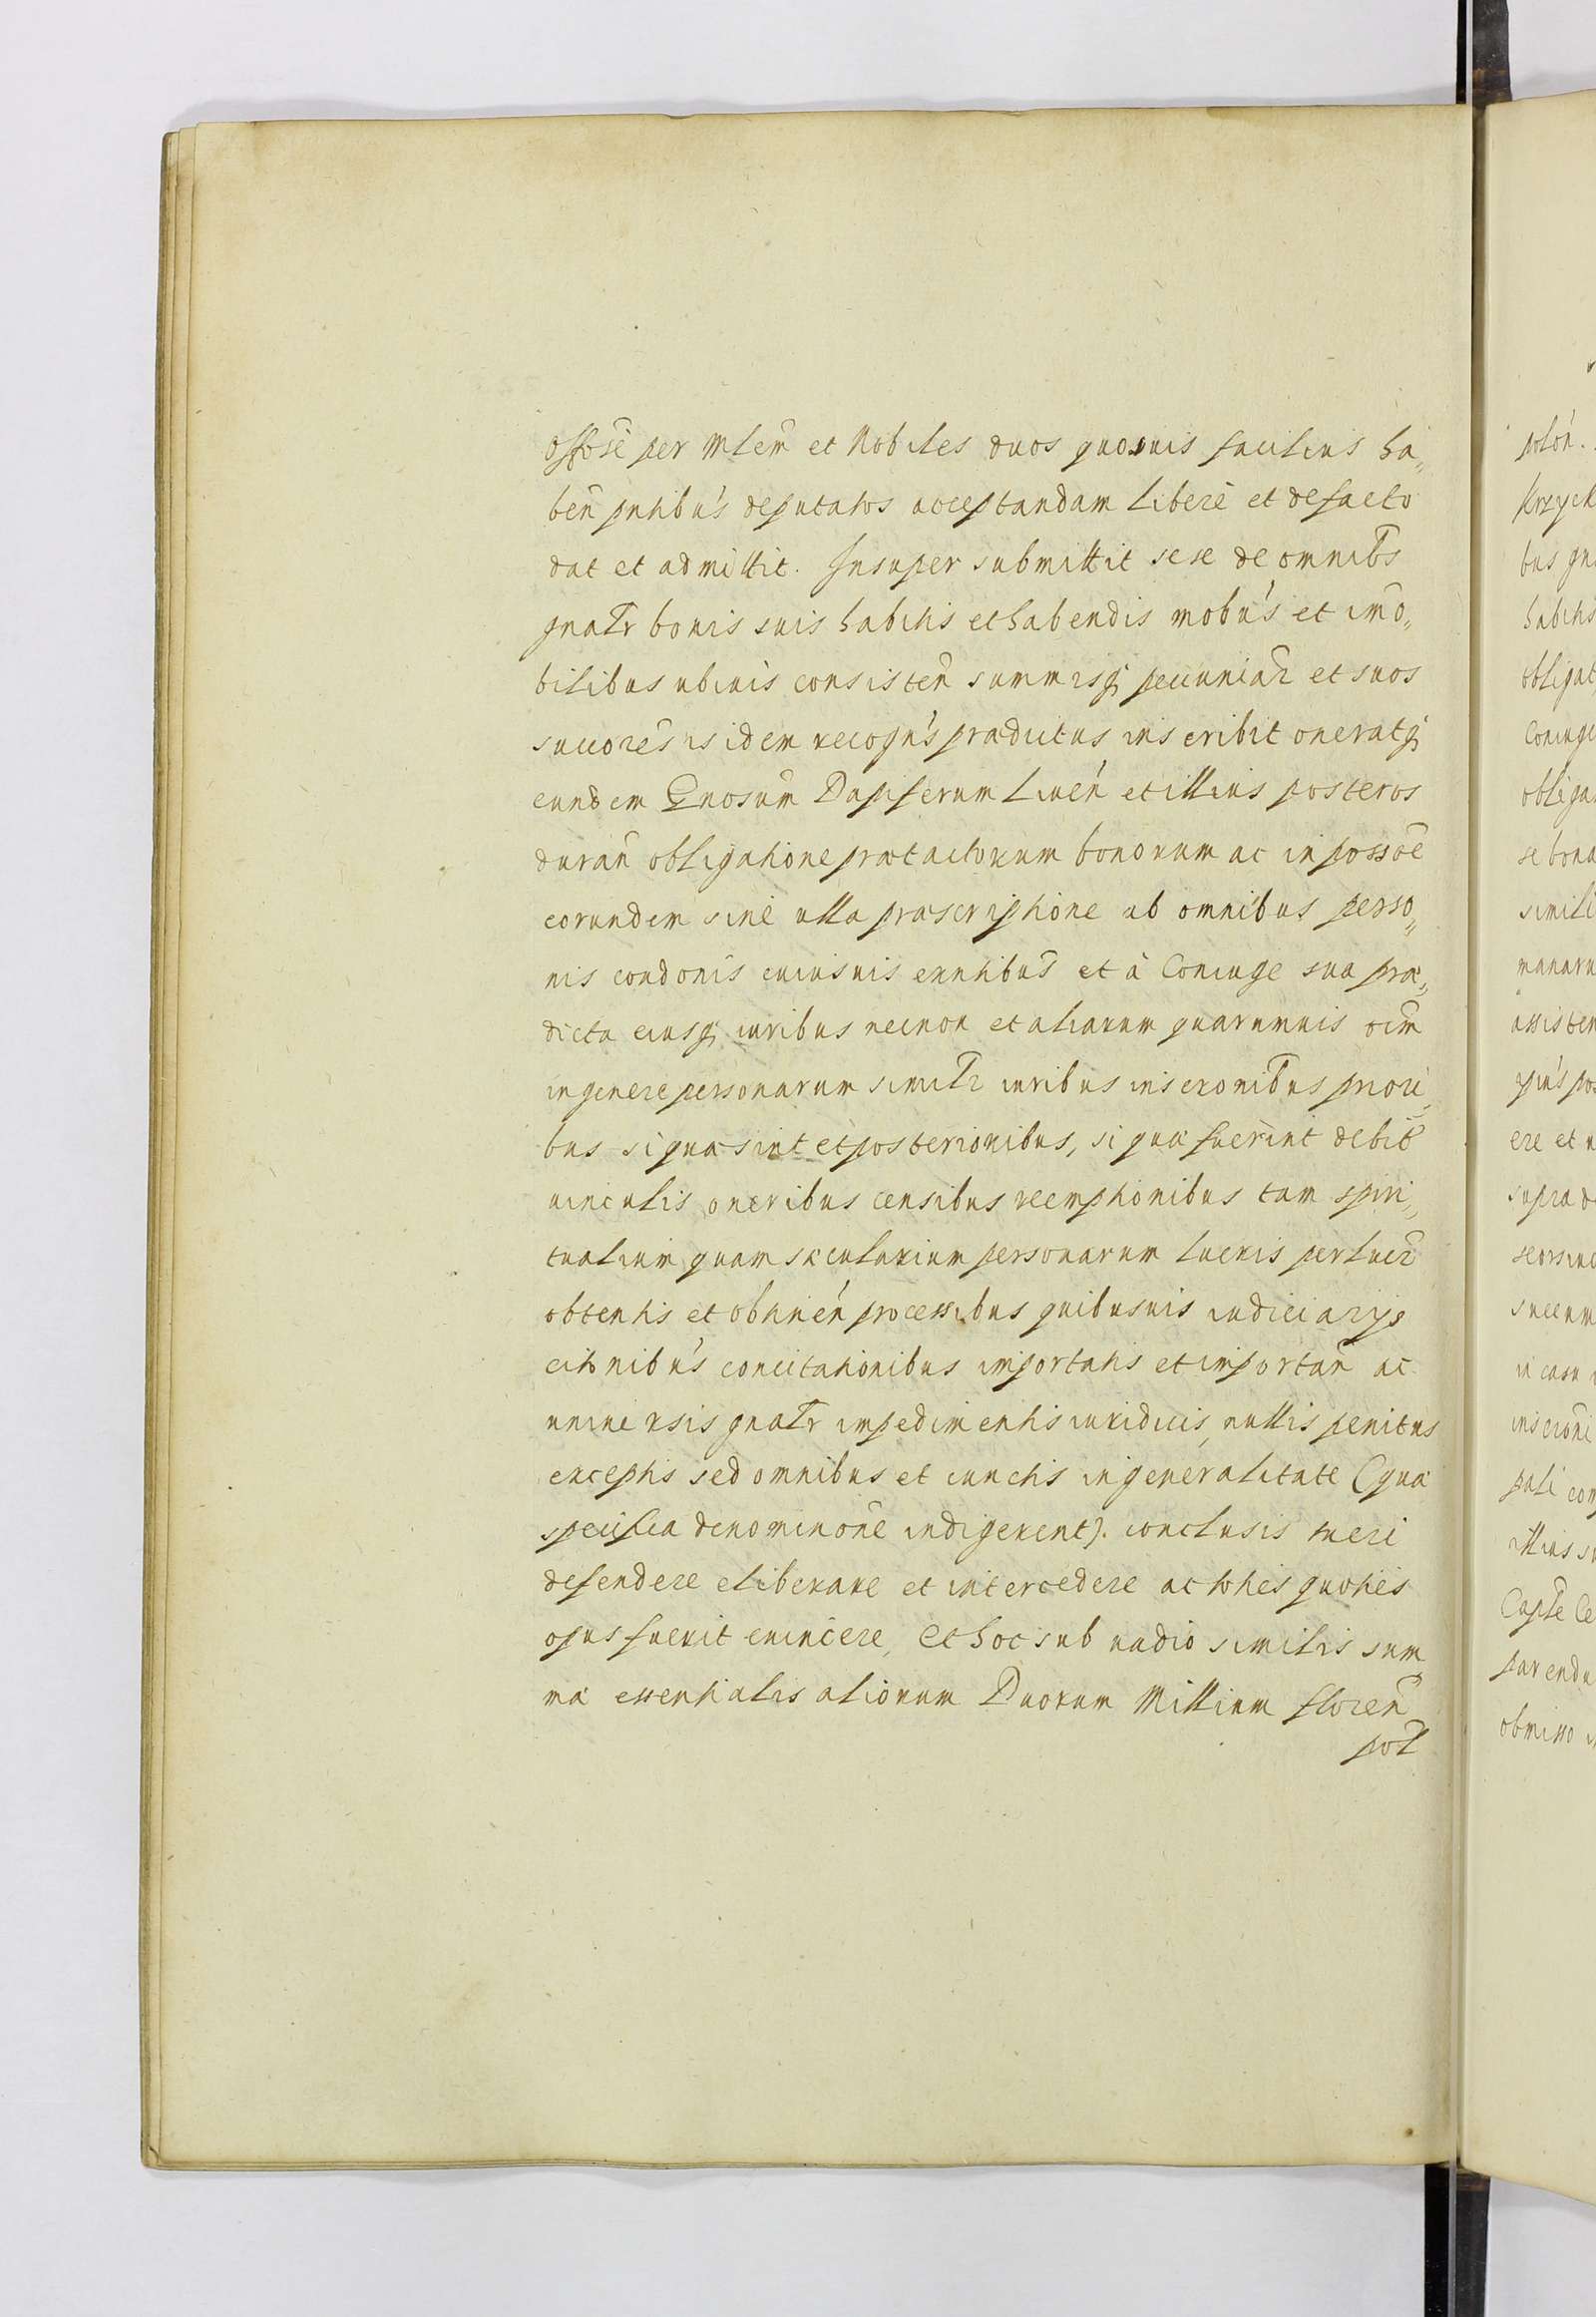 Offosē per Mlem̃ et Nobiles duos quosuis facilius ha„
beñ pntibus deputatos acceptandam liberè et defacto
dat et admittit. Insuper submittit sese de omnibs
gnatr bonis suis habitis et habendis mobus et im̃o„
bilibus ubiuis consisteñ summisq; pecuniar et suos
succores is idem recogns prædictus inscribit oneratq;
eundem Gnosum Dapiferum Liueñ et illius posteros
durañ obligatione prætactorum bonorum ac in possõe
eorundem sine ulla præscriptione ab omnibus perso„
nis condonis cuiusuis exntibus et à Coniuge sua præ„
dicta eiusq; iuribus necnon et aliarum quarumuis oim̃
in genere personarum similr iuribus inscronibus priori„
bus si quæ sint et posterioribus, si quæ fuerint debit
uinculis oneribus censibus reemptionibus tam spiri„
tualium quam sæcularium personarum lucris perlucr
obtentis et obtineñ processibus quibusuis iudiciarijs
citonibus concitationibus importatis et importañ ac
uniuersis gnatr impedimentis iuridicis, nullis penitus
exceptis sed omnibus et cunctis in generalitate (quæ
specifica denominone indigerent). conclusis tueri
defendere eliberare et intercedere ac toties quoties
opus fuerit euincere, Et hoc sub uadio similis sum„
mæ essentialis aliorum Duorum Millium floreñ
pol

polon.
Krzyck
bus gn
habitis
obligat
Coniuge
obliga
se bona
simili
manaru
assisten
ere et
supra d
succum
in casu
inscrone
illius su
parendu
obmisso